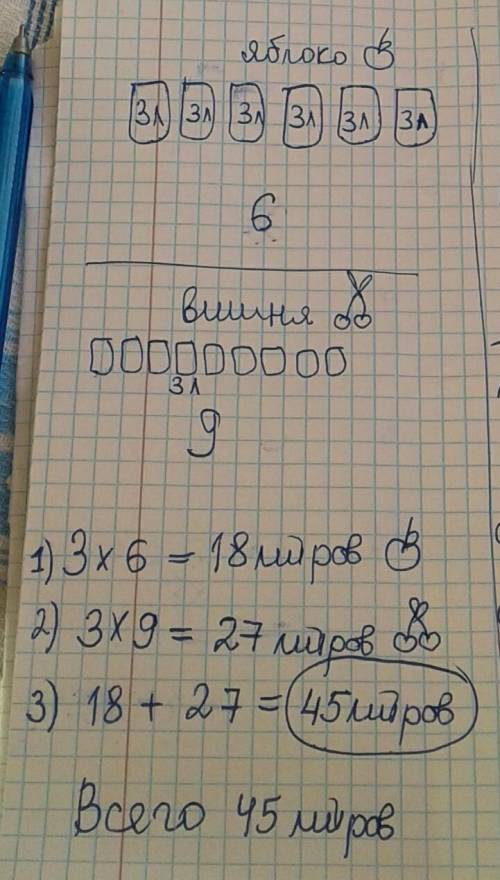 яблоко
3л 3л 3л 3л 3л 3л
6
вишня
3л
9
1) 3 x 6 = 18 литров
2) 3 x 9 = 27 литров
3) 18 + 27 = 45 литров
Всего 45 литров